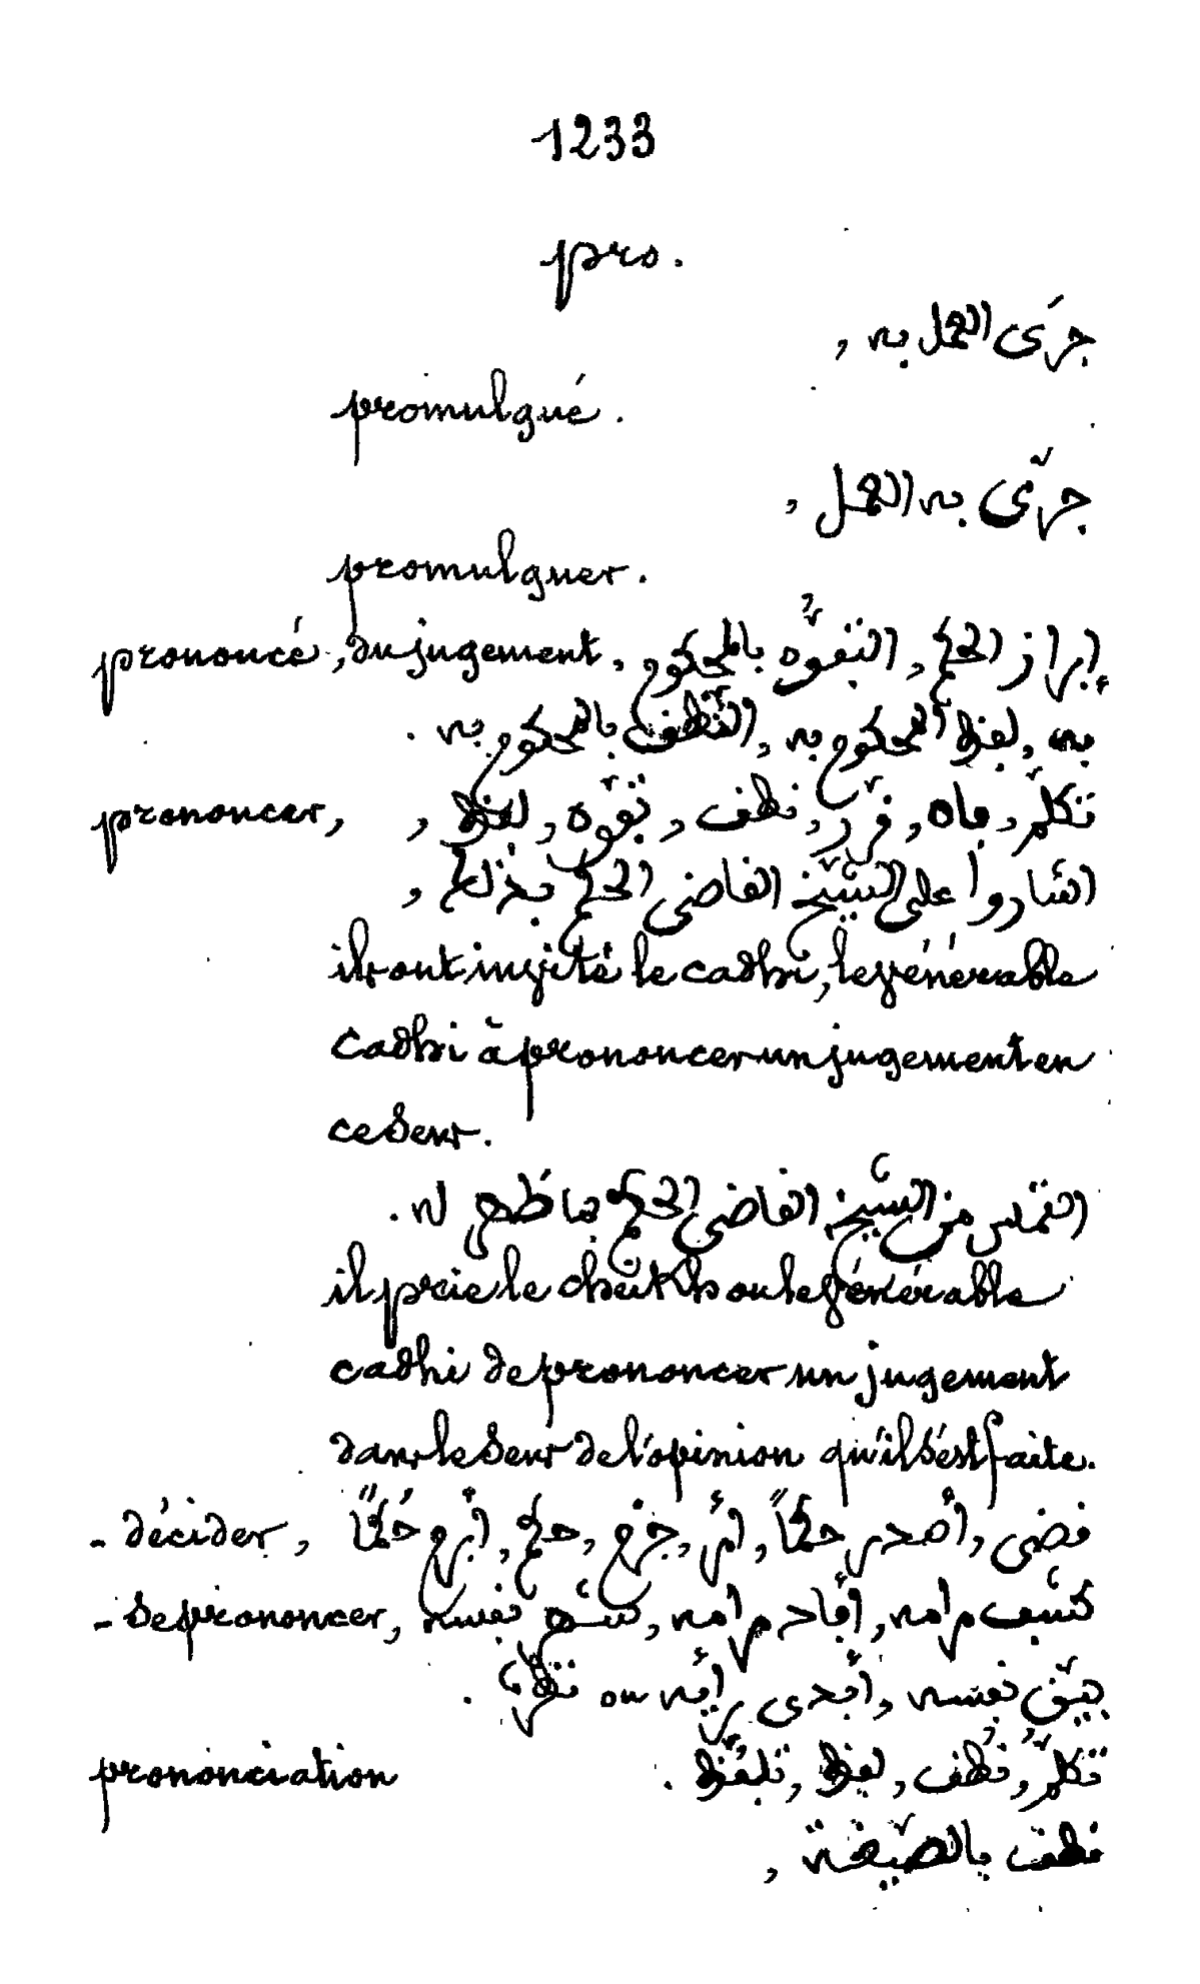 1233
pro.
جرَى العمل به ,
promulgué.
جرّى به العمل ,
promulguer.
prononcé, du jugement, إبراز الحكم , التفوّه بالمحكوم
به , لفظ المحكوم به , النطف بالمحكوم به .
prononcer, تكلّم , فاه , قرّر , نطف , تفوّه , لفظ ,
على الشيخ القاضى الحكم بذلك ,
ils ont invité le cadhi, le vénérable
cadhi à prononcer un jugement en
ce sens.
التمس من الشيخ القاضى الحكم بما ظهر له .
il prie le cheikh ou le vénérable
cadhi de prononcer un jugement
dans le sens de l'opinion qu'il s'est faite.
- décider, قضى , أصدر حكماً , أمر , جزم , حكم , أبرم حُكماً
- se prononcer, كشف مرامه , أفاد مرامه , نفسه
بيّن نفسه , أبدى رأيه ou
prononciation تكلّم , نُطف , لفظ , تلفّظ .
نطف بالصيغة ,